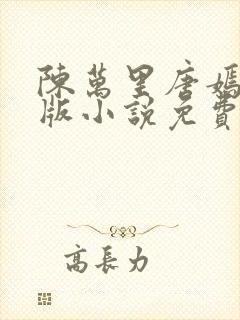 陳萬里唐嫣
版小說免費
高長力